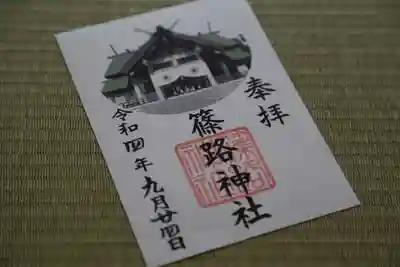 奉拝
篠路神社
令和四年九月廿四日